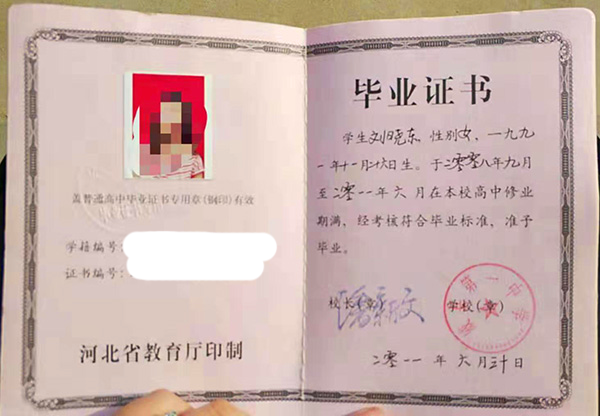 盖普通高中毕业证书专用章(钢印)有效
学籍编号:
证书编号:
河北省教育厅印制
毕业证书
学生刘晓东,性别女,一九九
一年十一月廿六日生。于二零零八年九月
至二零一一年六月在本校高中修业
期满,经考核符合毕业标准,准予
毕业。
校长(章)
学校(章)
第一中学
二零一一年六月三十日